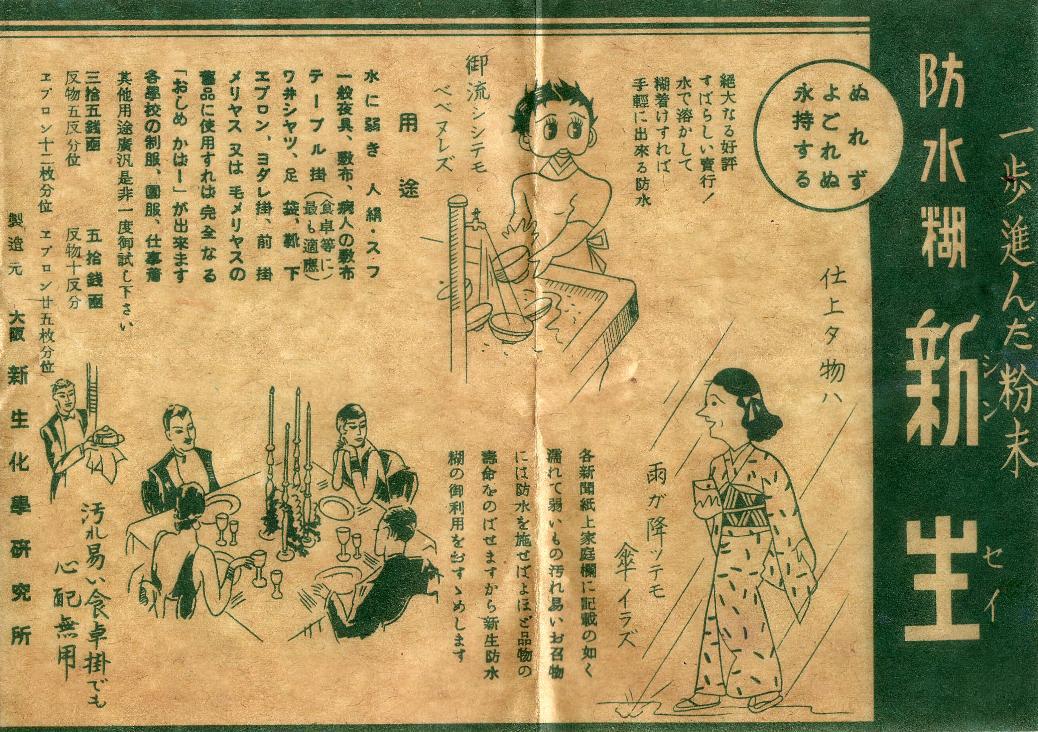 一歩進んだ粉末
防水糊 新生
シンセイ
ぬれず
よごれぬ
永持する
絶大なる好評
すばらしい賣行！
水で溶かして
糊着けすれば
手軽に出來る防水
御流シシテモ
ベベヌレズ
仕上タ物ハ
雨が降ッテモ
傘イラズ
各新聞紙上家庭欄に記載の如く
濡れて弱いもの汚れ易いお召物
には防水を施せばよほど品物の
壽命をのばせますから新生防水
糊の御利用をおすゝめします
用途
水に弱き人絹・スフ
一般夜具、敷布、病人の敷布
テーブル掛(食卓等に最も適應)
ワヰシヤツ、足袋、靴下
エプロン、ヨダレ掛、前掛
メリヤス又は毛メリヤスの
舊品に使用すれば完全なる
「おしめかばー」が出來ます
各學校の制服、園服、仕事着
其他用途廣汎是非一度御試し下さい
三拾五錢函 五拾錢函
反物五反分位 反物十反分
エプロン十二枚分位 エプロン廿五枚分位
製造元 大阪 新生化學研究所
汚れ易い食卓掛でも
心配無用